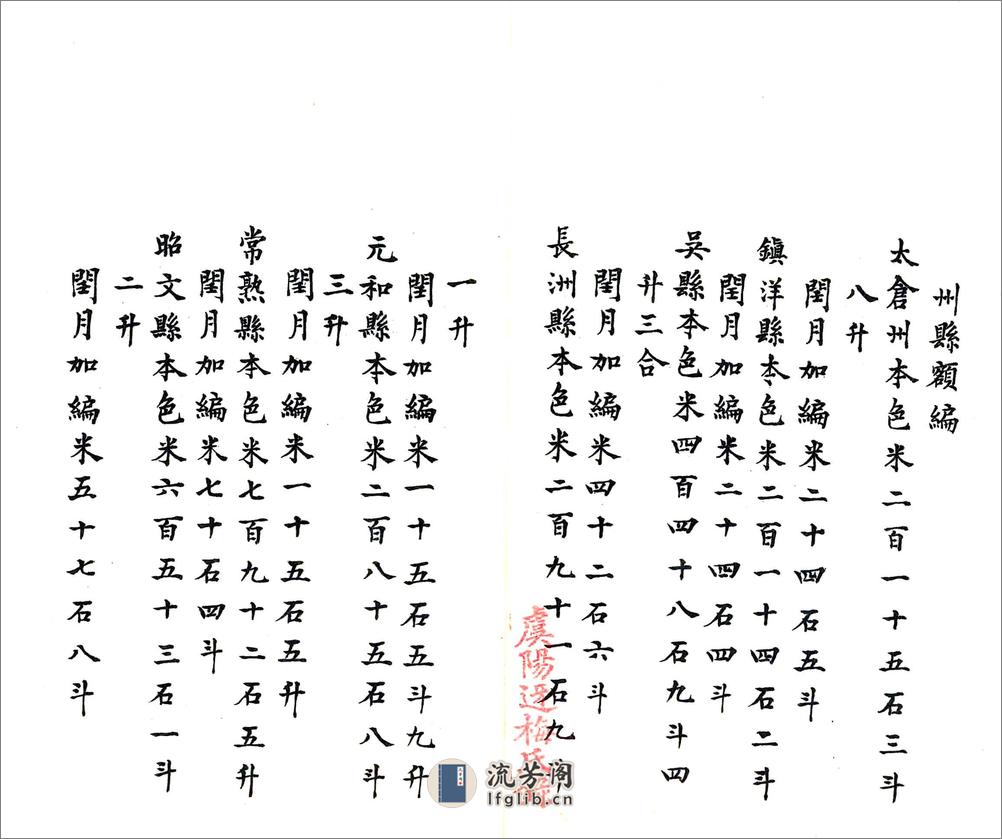 州縣額編
太倉州本色米二百一十五石三斗
八升
閏月加編米二十四石五斗
鎮洋縣本色米二百一十四石二斗
閏月加編米二十四石四斗
吳縣本色米四百四十八石九斗四
升三合
閏月加編米四十二石六斗
長洲縣本色米二百九十一石九
一升
閏月加編米一十五石五斗九升
元和縣本色米二百八十五石八斗
三升
閏月加編米一十五石五升
常熟縣本色米七百九十二石五升
閏月加編米七十石四斗
昭文縣本色米六百五十三石一斗
二升
閏月加編米五十七石八斗
虞陽
梅氏
流芳阁
lfglib.cn